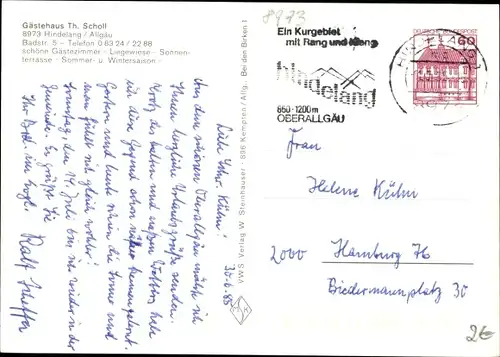 8973
Gästehaus Th. Scholl
8973 Hindelang / Allgäu
Badstr. 5 - Telefon 0 83 24 / 22 88
schöne Gästezimmer - Liegewiese - Sonnen-
terrasse - Sommer- u. Wintersaison -
Ein Kurgebiet
mit Rang und
hindelang
850-1200m
OBERALLGÄU
DEUTSCHE BUNDESPOST
60
30.6.85
Liebe Schw. Kühm!
Aus dem schönen Oberallgäu möchte ich
Ihnen herzliche Urlaubsgrüße senden.
Trotz des kalten und nassen Wetters habe
ich diese Gegend schon näher kennengelernt.
Gestern und heute schien die Sonne und
man fühlt sich gleich wohler!
Sonntag, den 14. Juli bin ich wieder in der
Gemeinde. Es grüßt Sie
Ihr Ralf
VWS Verlag W. Steinhauser · 896 Kempten / Allg. · Bei den Birken 1
Frau
Helene Kühm
2000 Hamburg 76
Biedermannplatz 30
2€